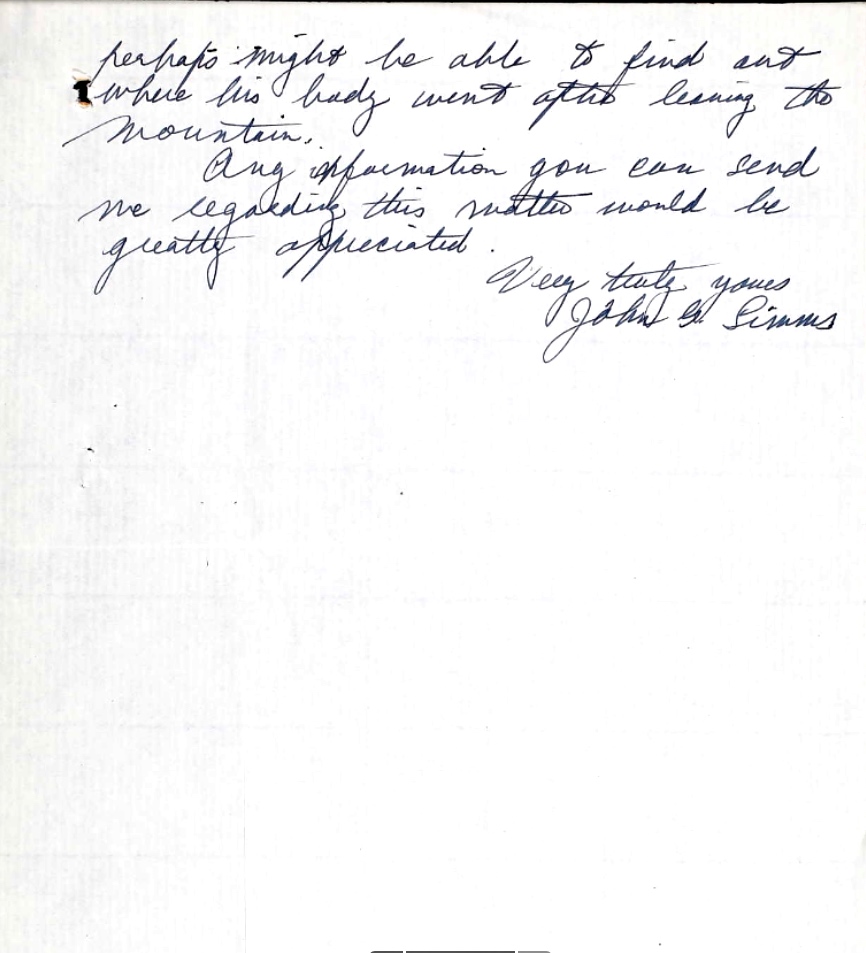 perhaps might be able to find out
where his body went after leaving the
mountain.
Any information you can send
me regarding this matter would be
greatly appreciated.
Very truly yours
John G. Simms